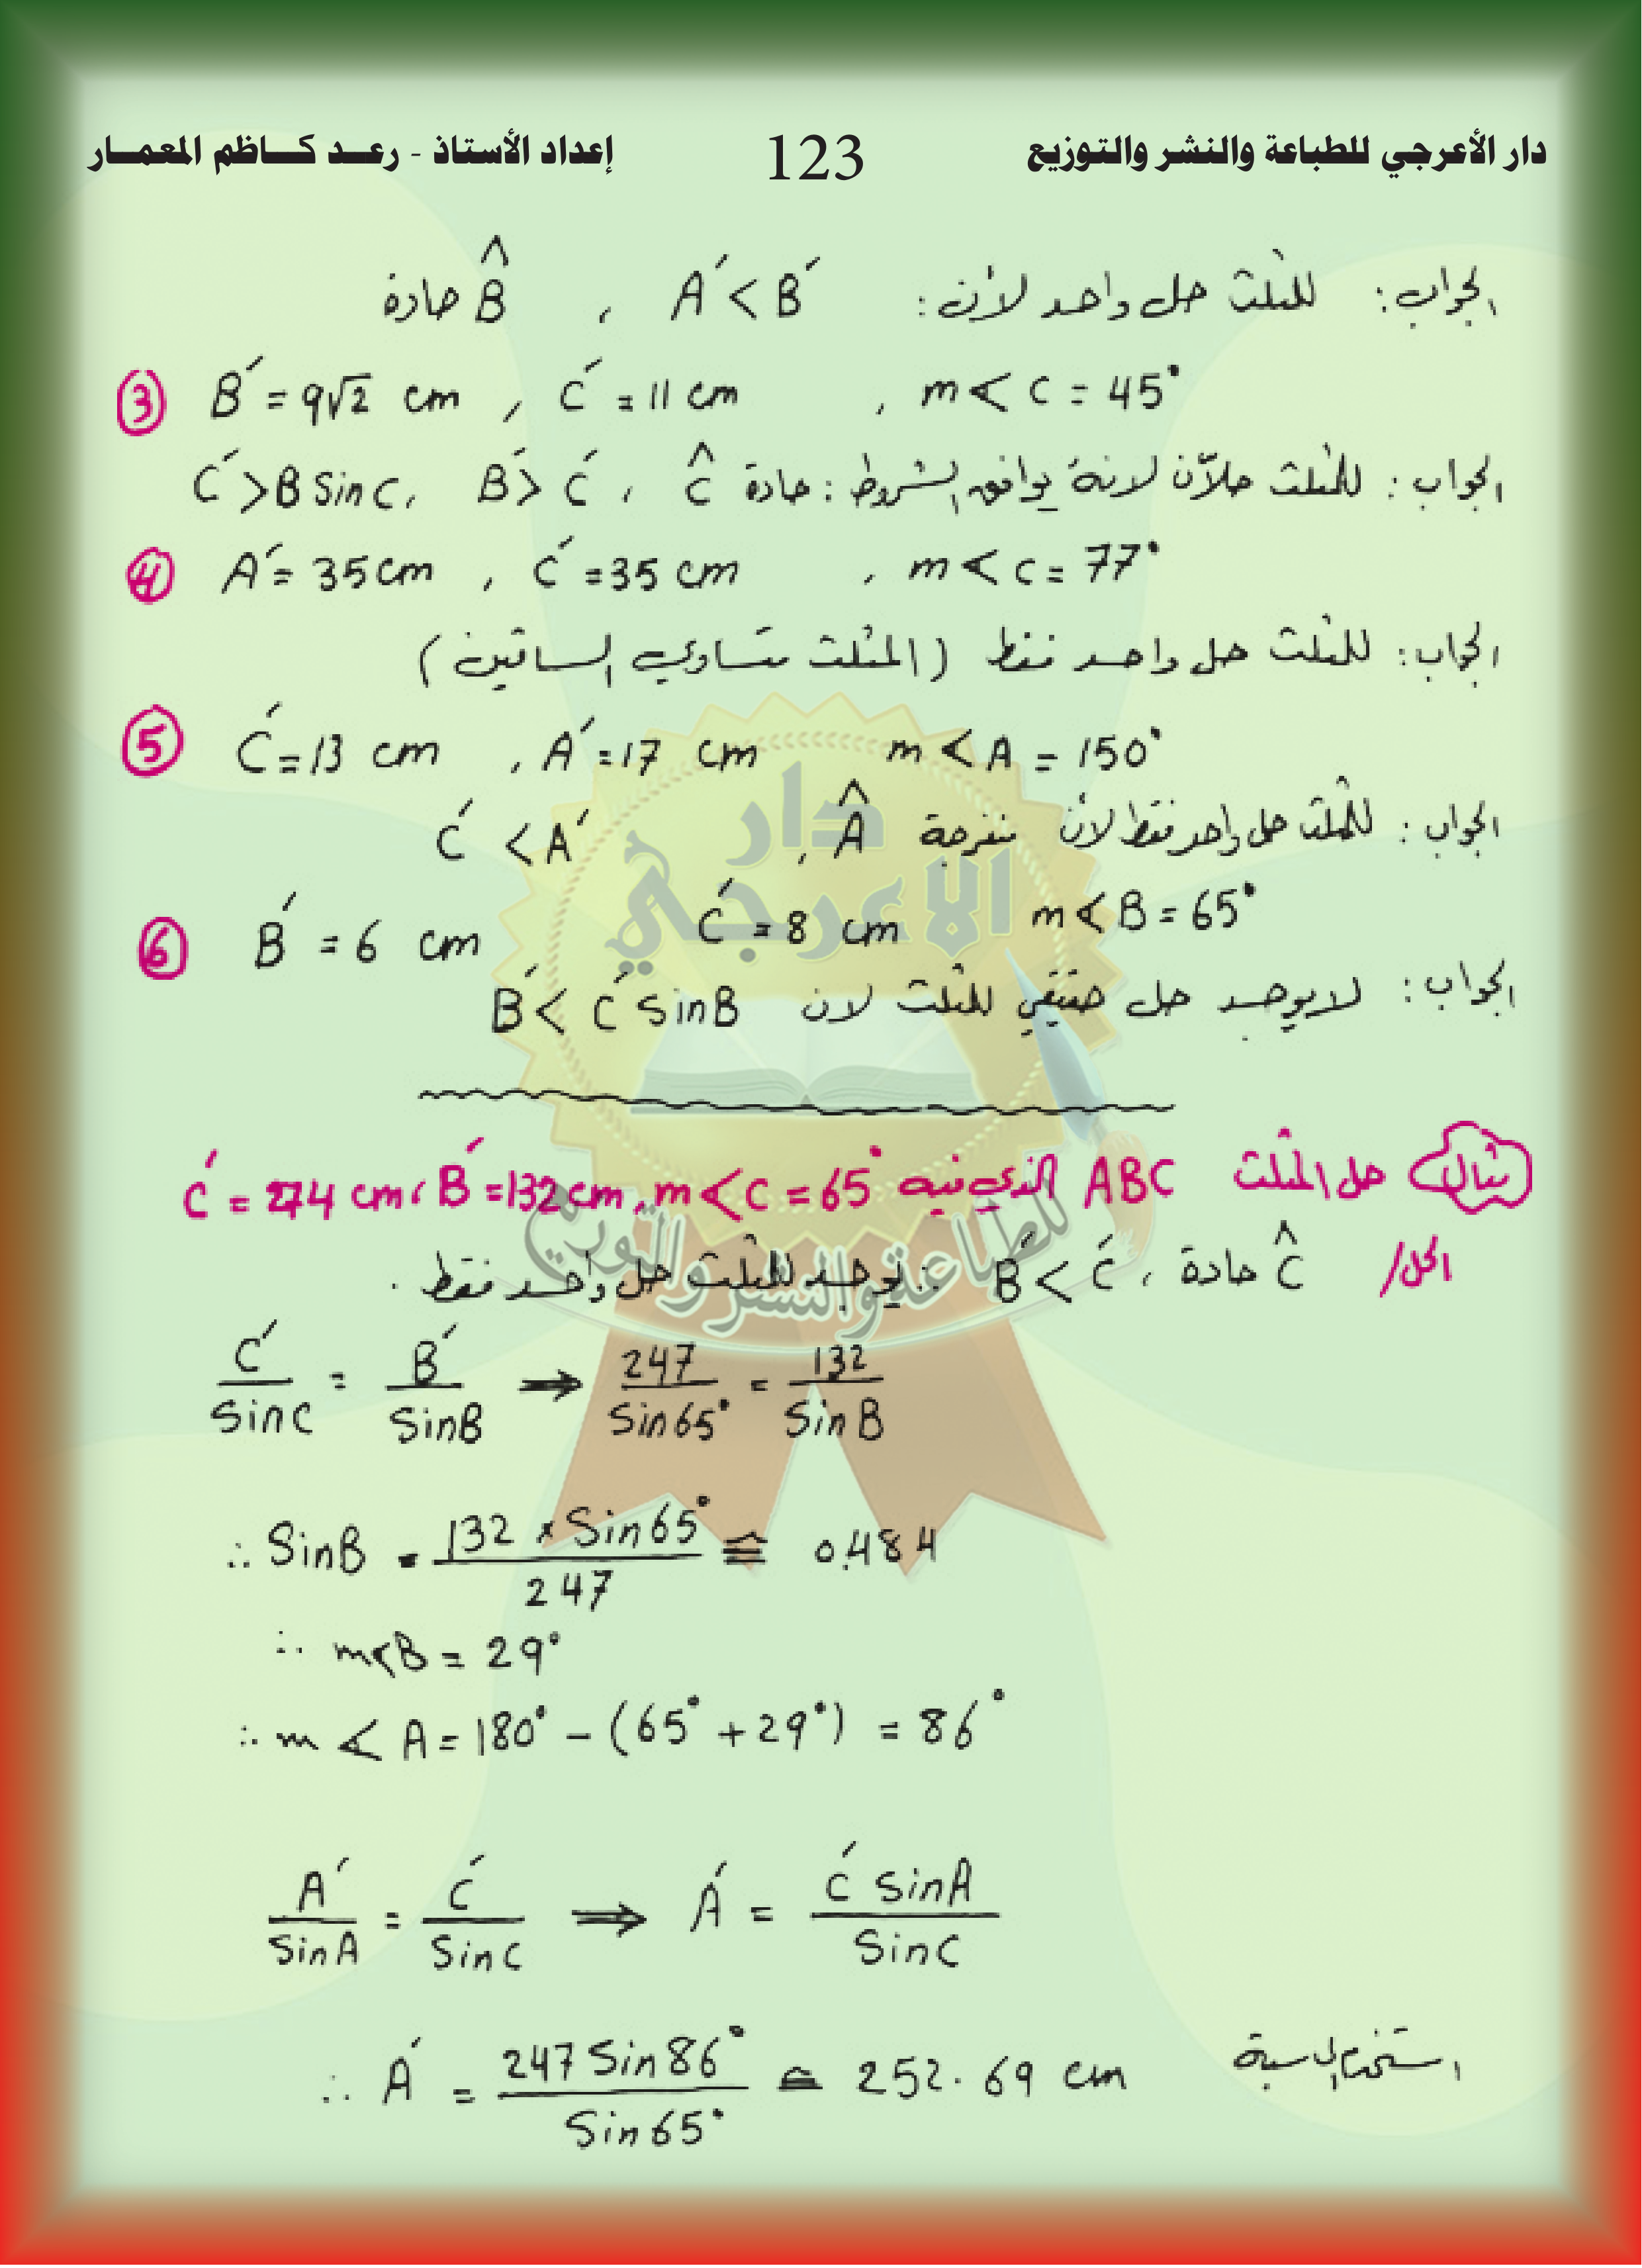 دار الأعرجي للطباعة والنشر والتوزيع 123 إعداد الأستاذ - رعـد كـاظم المعمـار
الجواب: للمثلث حل واحد لأن: A′ < B′ , B̂ حادة
③ B′ = 9√2 cm , C′ = 11 cm , m∢C = 45°
الجواب: للمثلث حلآن لانة يوافق الشروط: حادة Ĉ , B′ > C′ , C′ > B sin C
④ A′ = 35 cm , C′ = 35 cm , m∢C = 77°
الجواب: للمثلث حل واحد فقط (المثلث متساوي الساقين)
⑤ C′ = 13 cm , A′ = 17 cm m∢A = 150°
الجواب: للمثلث حل واحد فقط لأن منفرجة Â , C′ < A′
⑥ B′ = 6 cm C′ = 8 cm m∢B = 65°
الجواب: لا يوجد حل حقيقي للمثلث لان B′ < C′ sin B
مثال حل المثلث ABC الذي فيه C′ = 274 cm , B′ = 132 cm , m∢C = 65°
الحل/ Ĉ حادة , B′ < C′ ∴ يوجد للمثلث حل واحد فقط .
C′/SinC = B′/SinB ⇒ 247/Sin65° = 132/SinB
∴ SinB = 132 × Sin65°/247 ≅ 0.484
∴ m∢B = 29°
∴ m∢A = 180° − (65° + 29°) = 86°
A′/SinA = C′/SinC ⇒ A′ = C′ SinA/SinC
∴ A′ = 247 Sin86°/Sin65° ≅ 252.69 cm استخدام الحاسبة
دار
الاعرجي
للطباعة والنشر والتوزيع